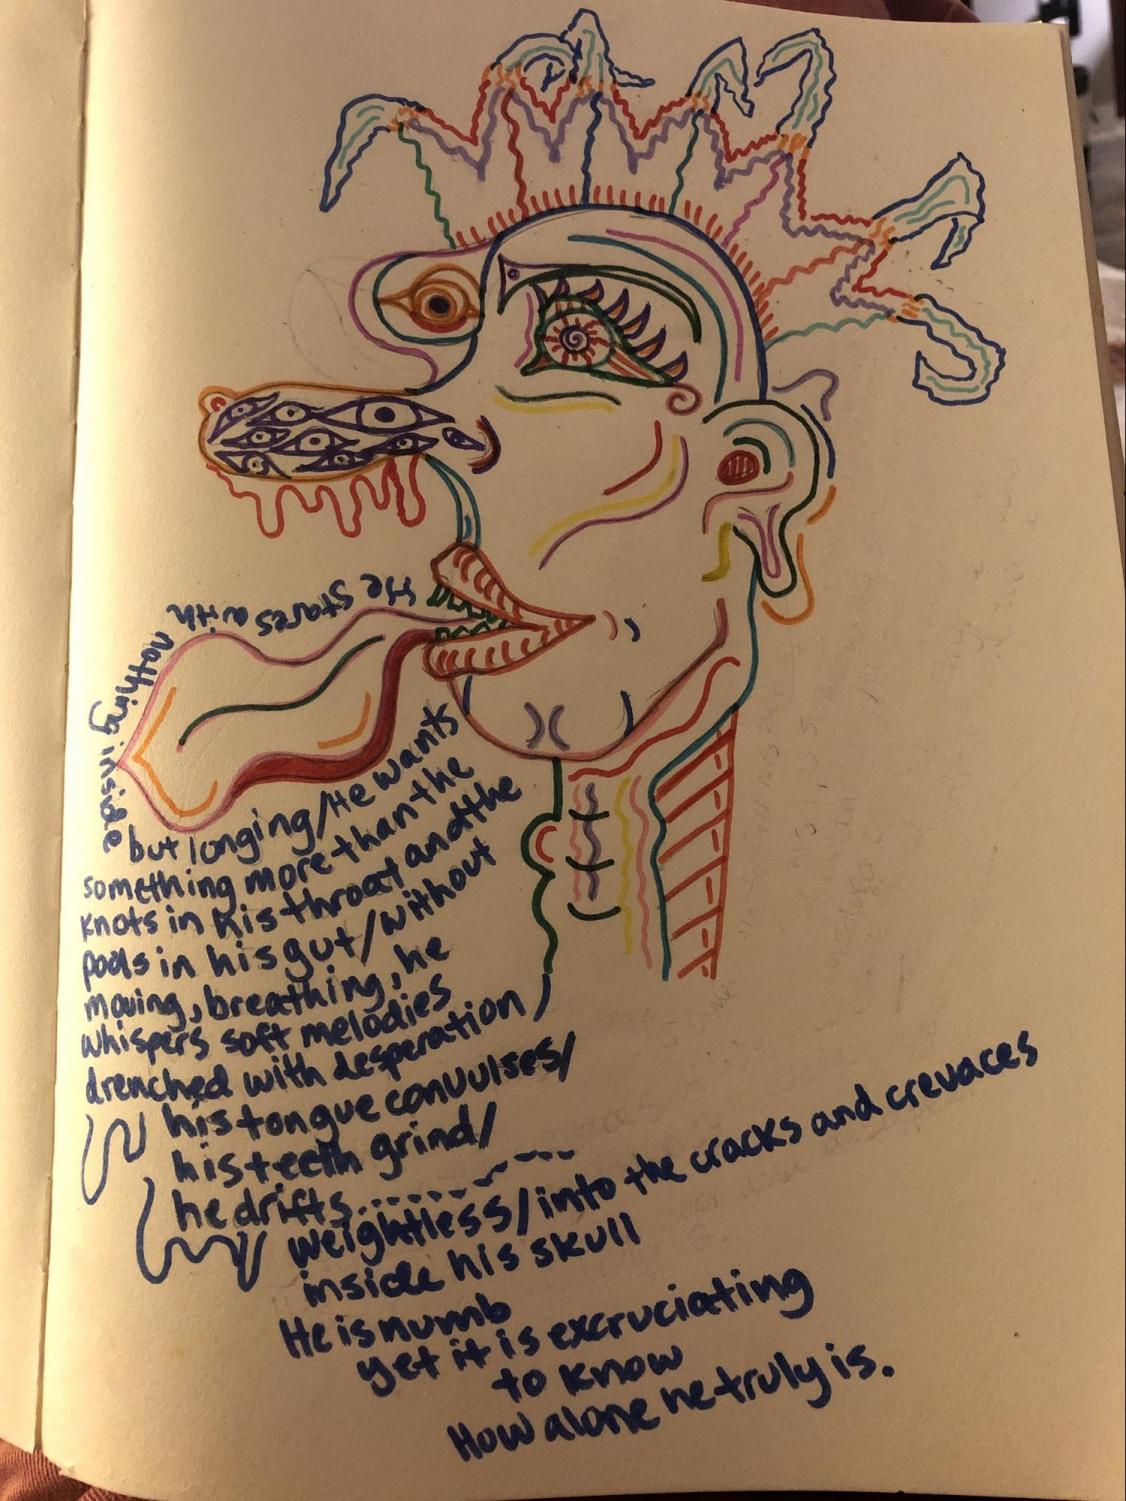 He stares with nothing inside
but longing/He wants
something more than the
knots in his throat and the
pools in his gut/without
moving, breathing, he
whispers soft melodies
drenched with desperation/
his tongue convulses/
his teeth grind/
he drifts..........
weightless/into the cracks and crevaces
inside his skull
He is numb
yet it is excruciating
to know
How alone he truly is.